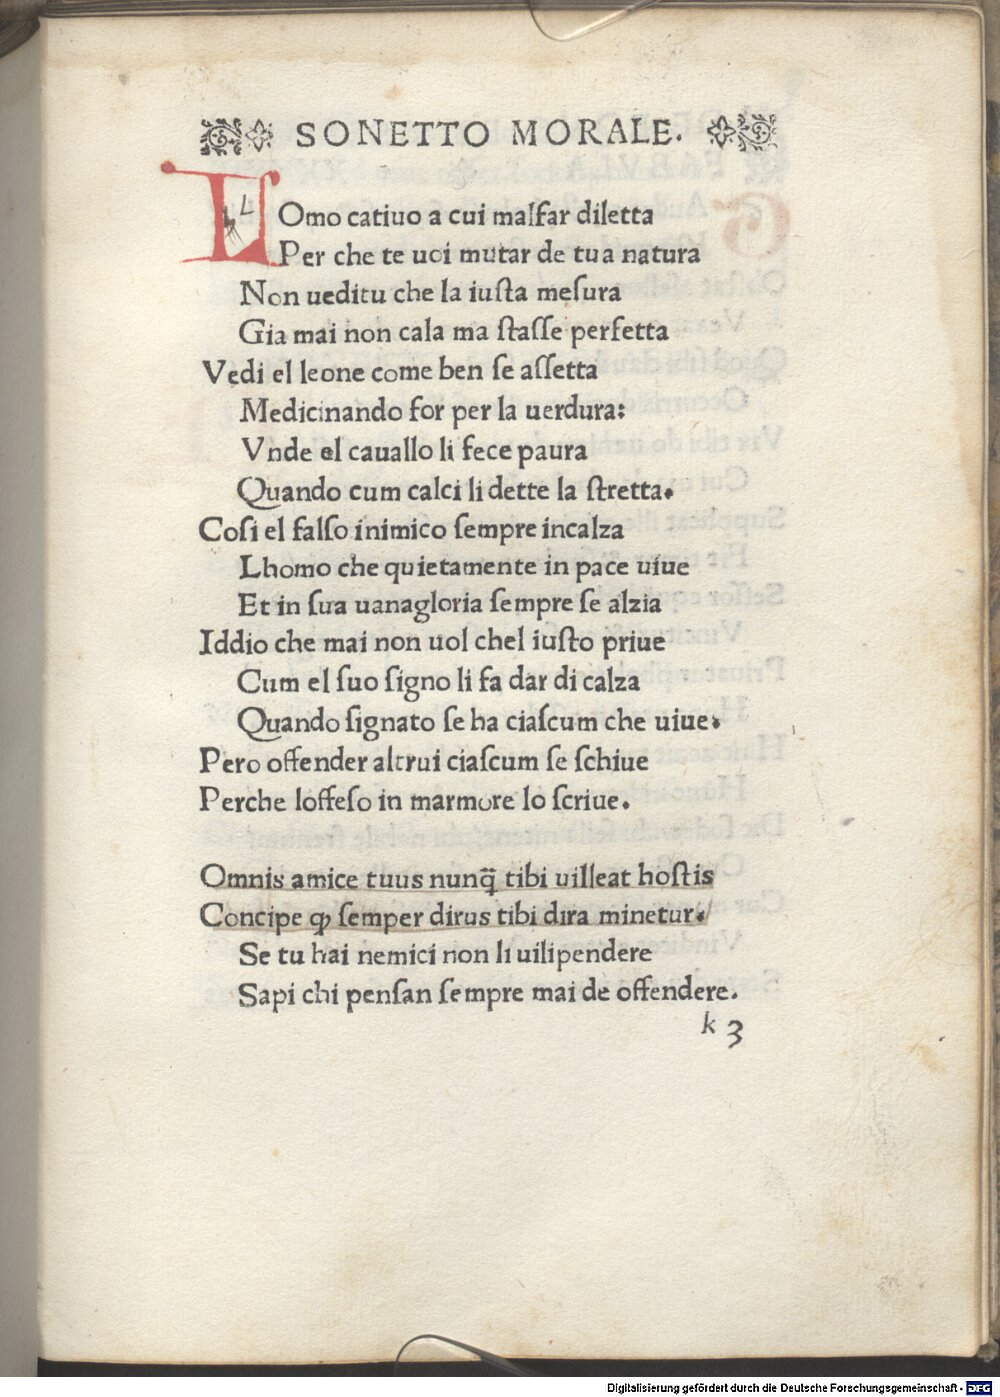 SONETTO MORALE.
LOmo catiuo a cui malfar diletta
Per che te uoi mutar de tua natura
Non ueditu che la iuſta meſura
Gia mai non cala ma ſtaſſe perfetta
Vedi el leone come ben ſe aſſetta
Medicinando for per la uerdura:
Vnde el cauallo li fece paura
Quando cum calci li dette la ſtretta.
Coſi el falſo inimico ſempre incalza
Lhomo che quietamente in pace uiue
Et in ſua uanagloria ſempre ſe alzia
Iddio che mai non uol chel iuſto priue
Cum el ſuo ſigno li fa dar di calza
Quando ſignato ſe ha ciaſcum che uiue.
Pero offender altrui ciaſcum ſe ſchiue
Perche loffeſo in marmore lo ſcriue.
Omnis amice tuus nunq̃ tibi uilleat hoſtis
Concipe ꝙ ſemper dirus tibi dira minetur.
Se tu hai nemici non li uilipendere
Sapi chi penſan ſempre mai de offendere.
k 3
Digitalisierung gefördert durch die Deutsche Forschungsgemeinschaft - DFG